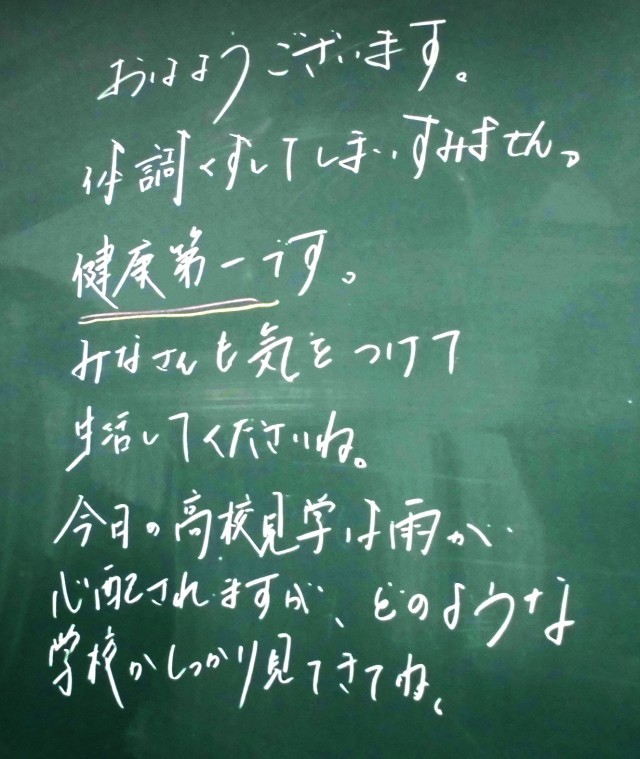 おはようございます。
体調くずしてしまいすみません。
健康第一です。
みなさんも気をつけて
生活してくださいね。
今日の高校見学は雨が
心配されますが、どのような
学校かしっかり見てきてね、